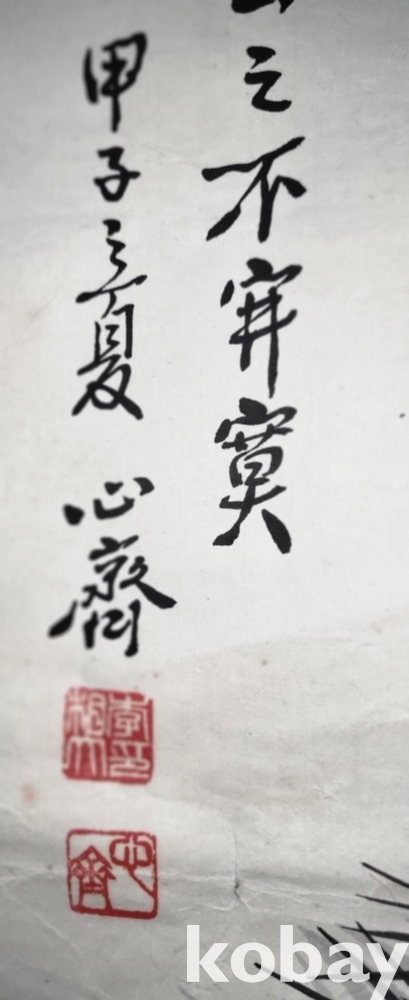 之不寂寞
甲子之夏 心齋
心齋
kobay